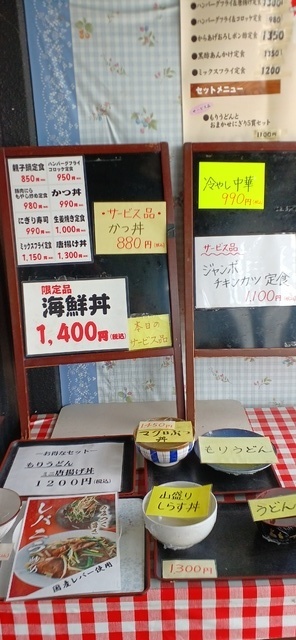 ハンバーグフライ&唐揚げ定食
1300
ハンバーグフライ&コロッケ定食
980
●からあげおろしポン酢定食
1350
●黒酢あんかけ定食
1350
●ミックスフライ定食
1200
セットメニュー
●もりうどんと
おまかせにぎり5貫セット
1100円
親子御定食
850円(税込)
ハンバーグフライ
コロッケ定食
950円(税込)
豚肉にら
もやし炒め定食
980円
かつ丼
990円(税込)
にぎり寿司
990円(税込)
生姜焼き定食
1,000円(税込)
ミックスフライ定食
1,150円(税込)
唐揚げ丼
1,300円(税込)
・サービス品・
かつ丼
880円(税込)
限定品
海鮮丼
1,400円(税込)
本日の
サービス品
冷やし中華
990円(税込)
サービス品
ジャンボ
チキンカツ定食
1,100円(税込)
―お得なセット―
もりうどん
ミニ唐揚げ丼
1200円(税込)
1450円
マグロぶつ
丼
もりうどん
山盛り
しらす丼
うどん
1300円
レバニラ
定食
国産レバー使用